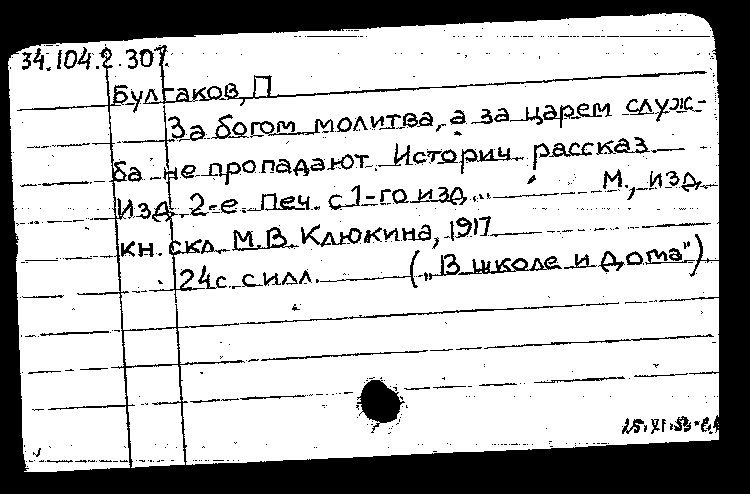 34.104.2.307.
Булгаков, П
За богом молитва, а за царем служ-
ба не пропадают. Историч. рассказ.
Изд. 2-е. Печ. с 1-го изд... М., изд.
кн. скл. М.В. Клюкина, 1917.
24с. с илл. („В школе и дома").